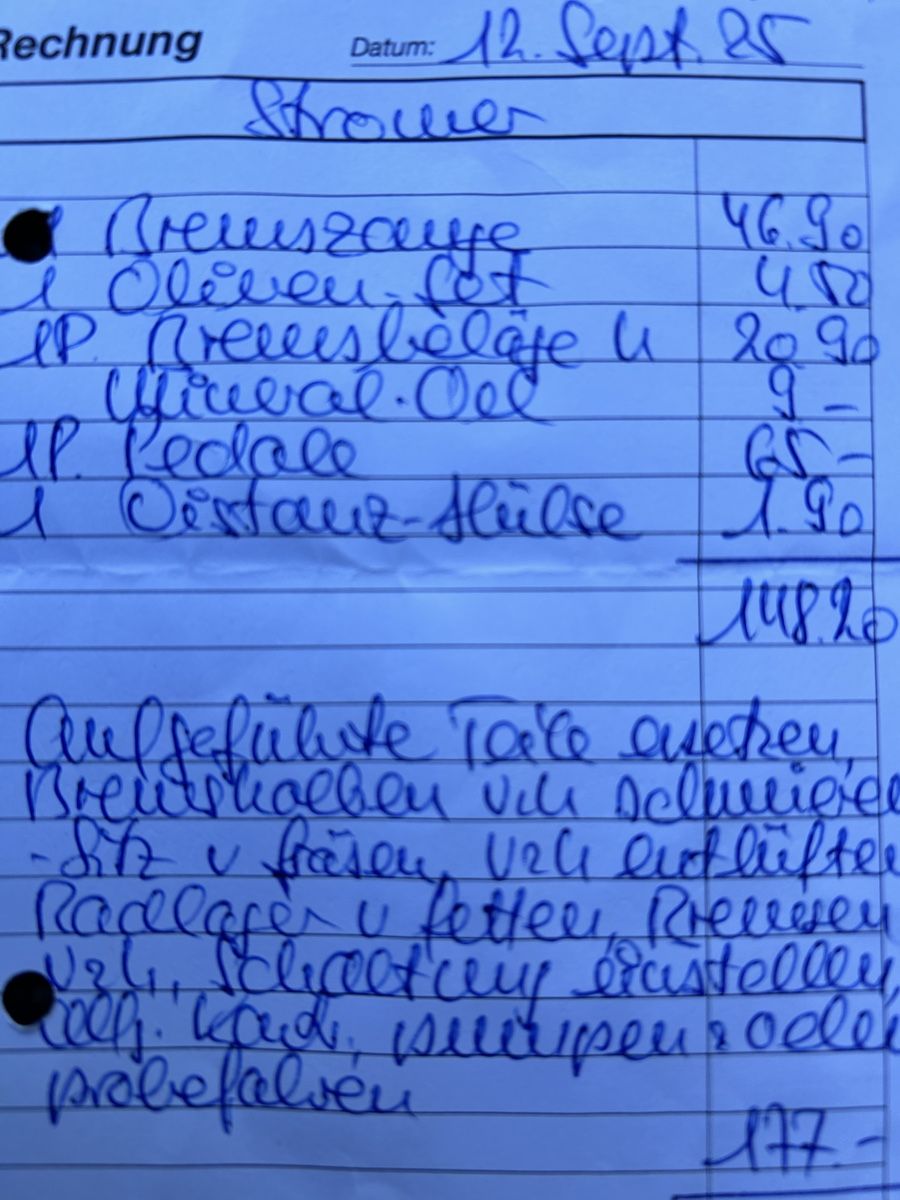 Rechnung Datum: 12. Sept. 25
Stromer
1 Bremszange 46.90
1 Oliven-Set 4.50
1P. Bremsbeläge h 20.90
Mineral-Oel 9.-
1P. Pedale 65.-
1 Distanz-Hülse 1.90
148.20
Aufgeführte Teile ersetzen,
Bremskolben v+h schmieren
-Sitz v fräsen, v+h entlüften
Radlager v fetten, Bremsen
v+h, Schaltung einstellen,
allg. Kontr. pumpen + oelen
probefahren
177.-